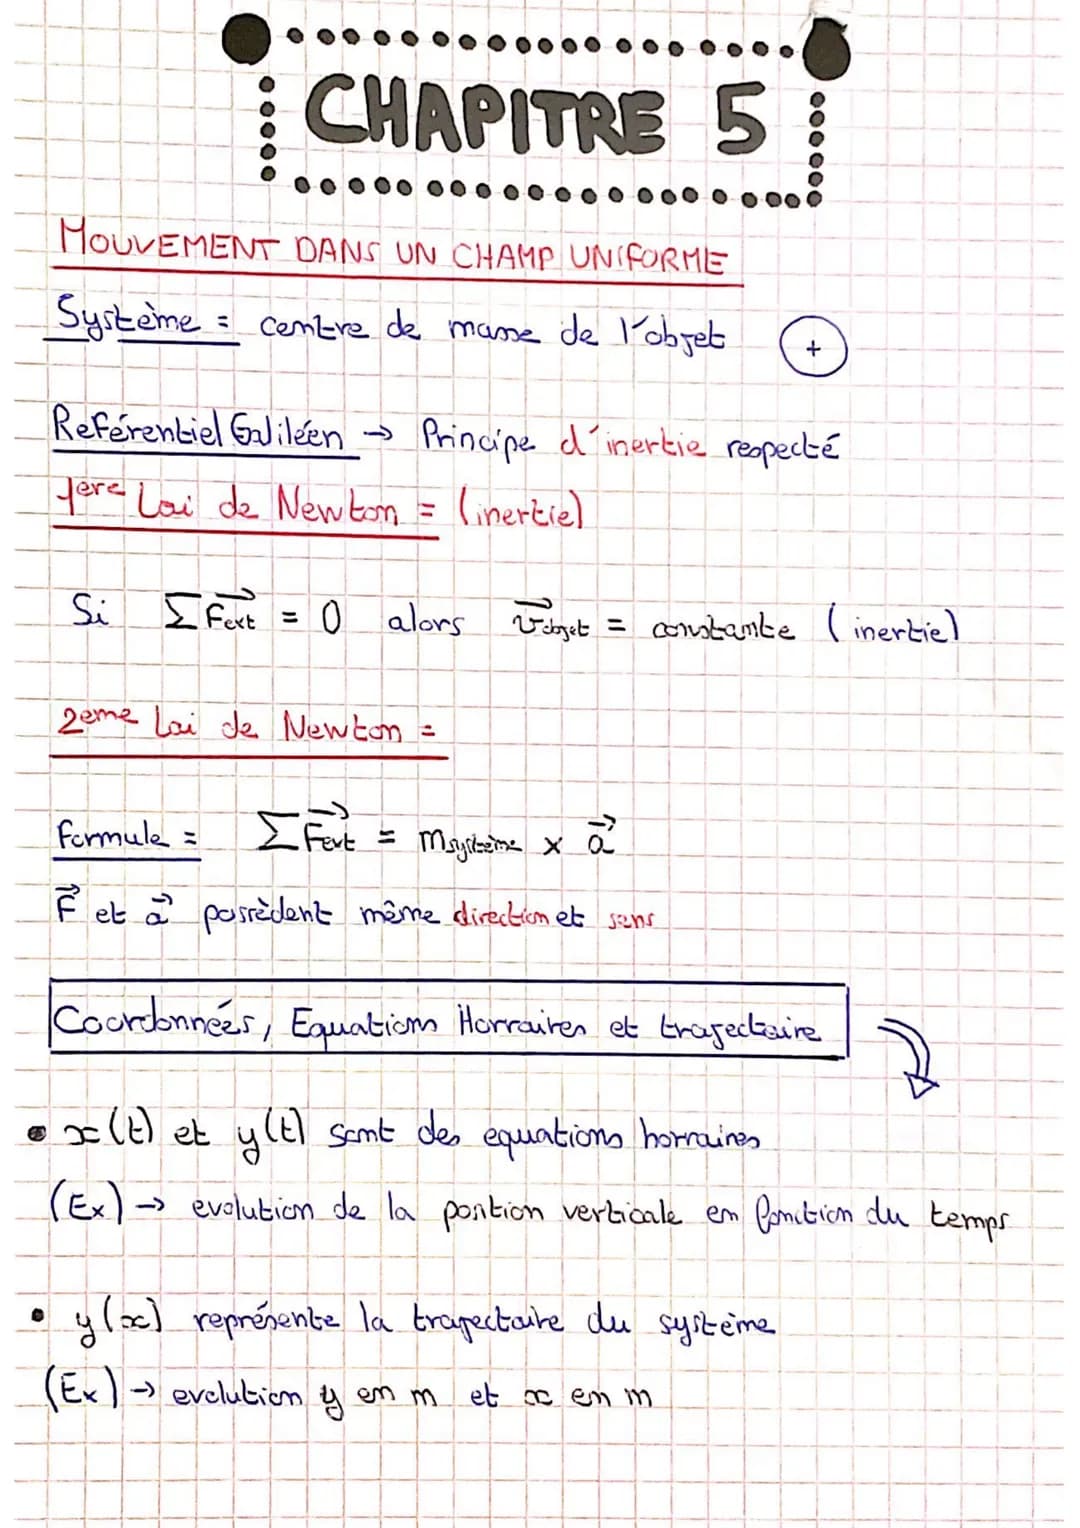 CHAPITRE 5
MOUVEMENT DANS UN CHAMP UNIFORME
Système = centre de masse de l'objet +
Reférentiel Galiléen → Principe d'inertie respecté
1ere Loi de Newton = (inertie)
Si Σ\vec{Fext} = 0 alors \vec{Vobjet} = constante (inertie)
2eme Loi de Newton =
Formule = Σ\vec{Fext} = msystème x \vec{a}
\vec{F} et \vec{a} possèdent même direction et sens
Coordonnées, Equations Horraires et trajectoire
• x(t) et y(t) sont des equations horraires
(Ex) → evolution de la position verticale en fonction du temps
• y(x) représente la trajectoire du système
(Ex) → evolution y en m et x en m